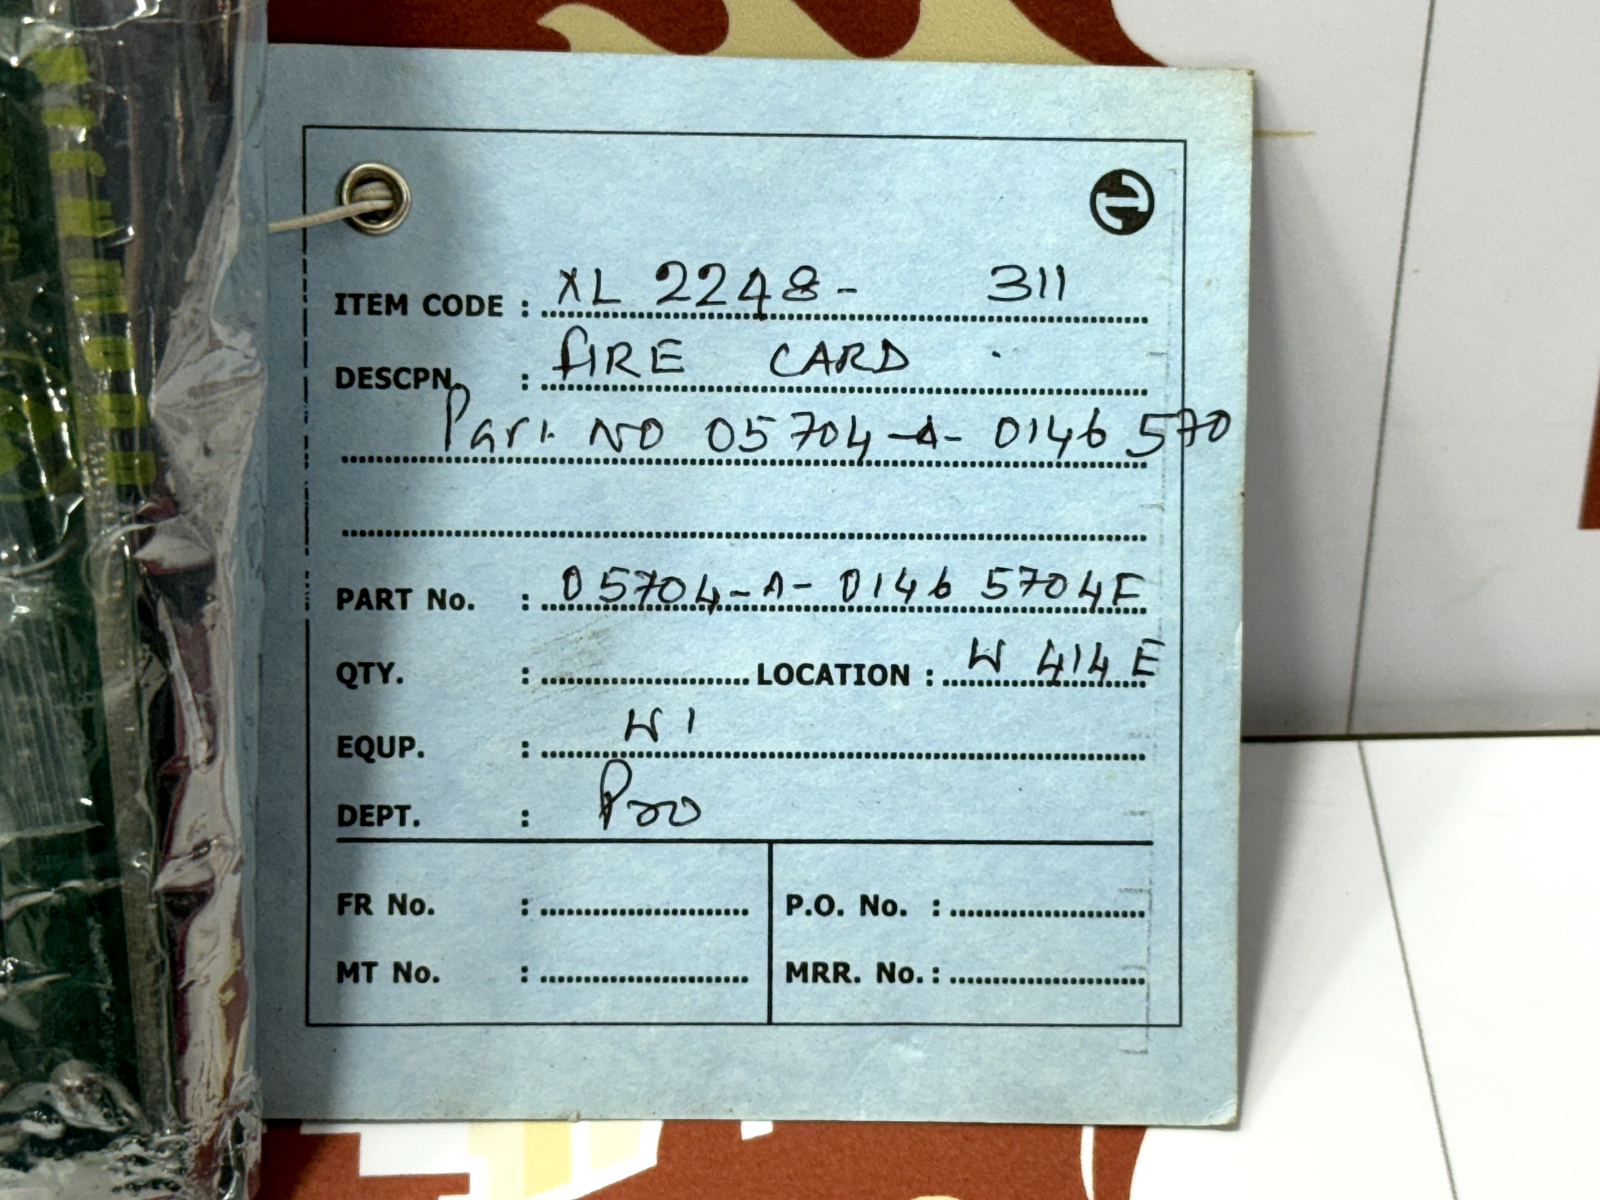 ITEM CODE : XL 2248- 311
DESCPN. : FIRE CARD
Part NO 05704-A-0146 570
PART No. : 05704-A-0146 5704E
QTY. : LOCATION : W 414E
EQUP. : W1
DEPT. : Pro
FR No. : P.O. No. :
MT No. : MRR. No. :